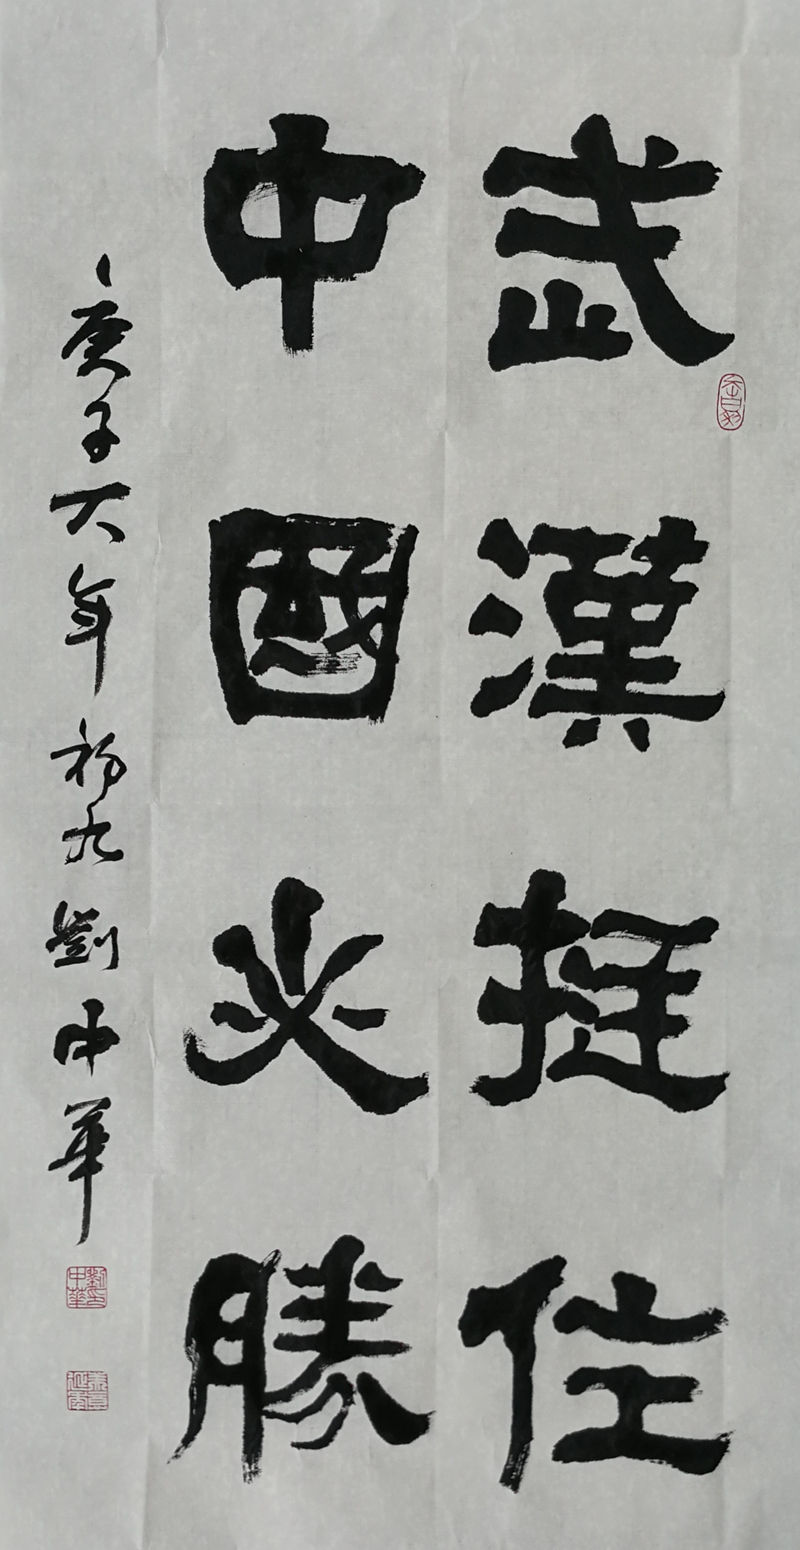 武漢挺住
中國必勝
庚子大年初九劉中華
劉中華印